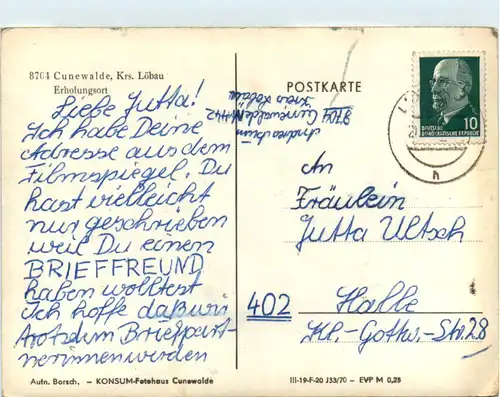 8704 Cunewalde, Krs. Löbau
Erholungsort
Liebe Jutta!
Ich habe Deine
Adresse aus dem
Filmspiegel. Du
hast vielleicht
nur geschrieben
weil Du einen
BRIEFFREUND
haben wolltest
Ich hoffe daß wir
trotzdem Briefpart-
nerinnen werden
Aufn. Borsch. – KONSUM-Fotohaus Cunewalde
POSTKARTE
8704 Cunewalde
Kreis Löbau
10
DEUTSCHE
DEMOKRATISCHE REPUBLIK
h
An
Fräulein
Jutta Ultsch
402 Halle
Kl.-Gottw.-Str. 28
III-19-F-20 J33/70 – EVP M 0,25